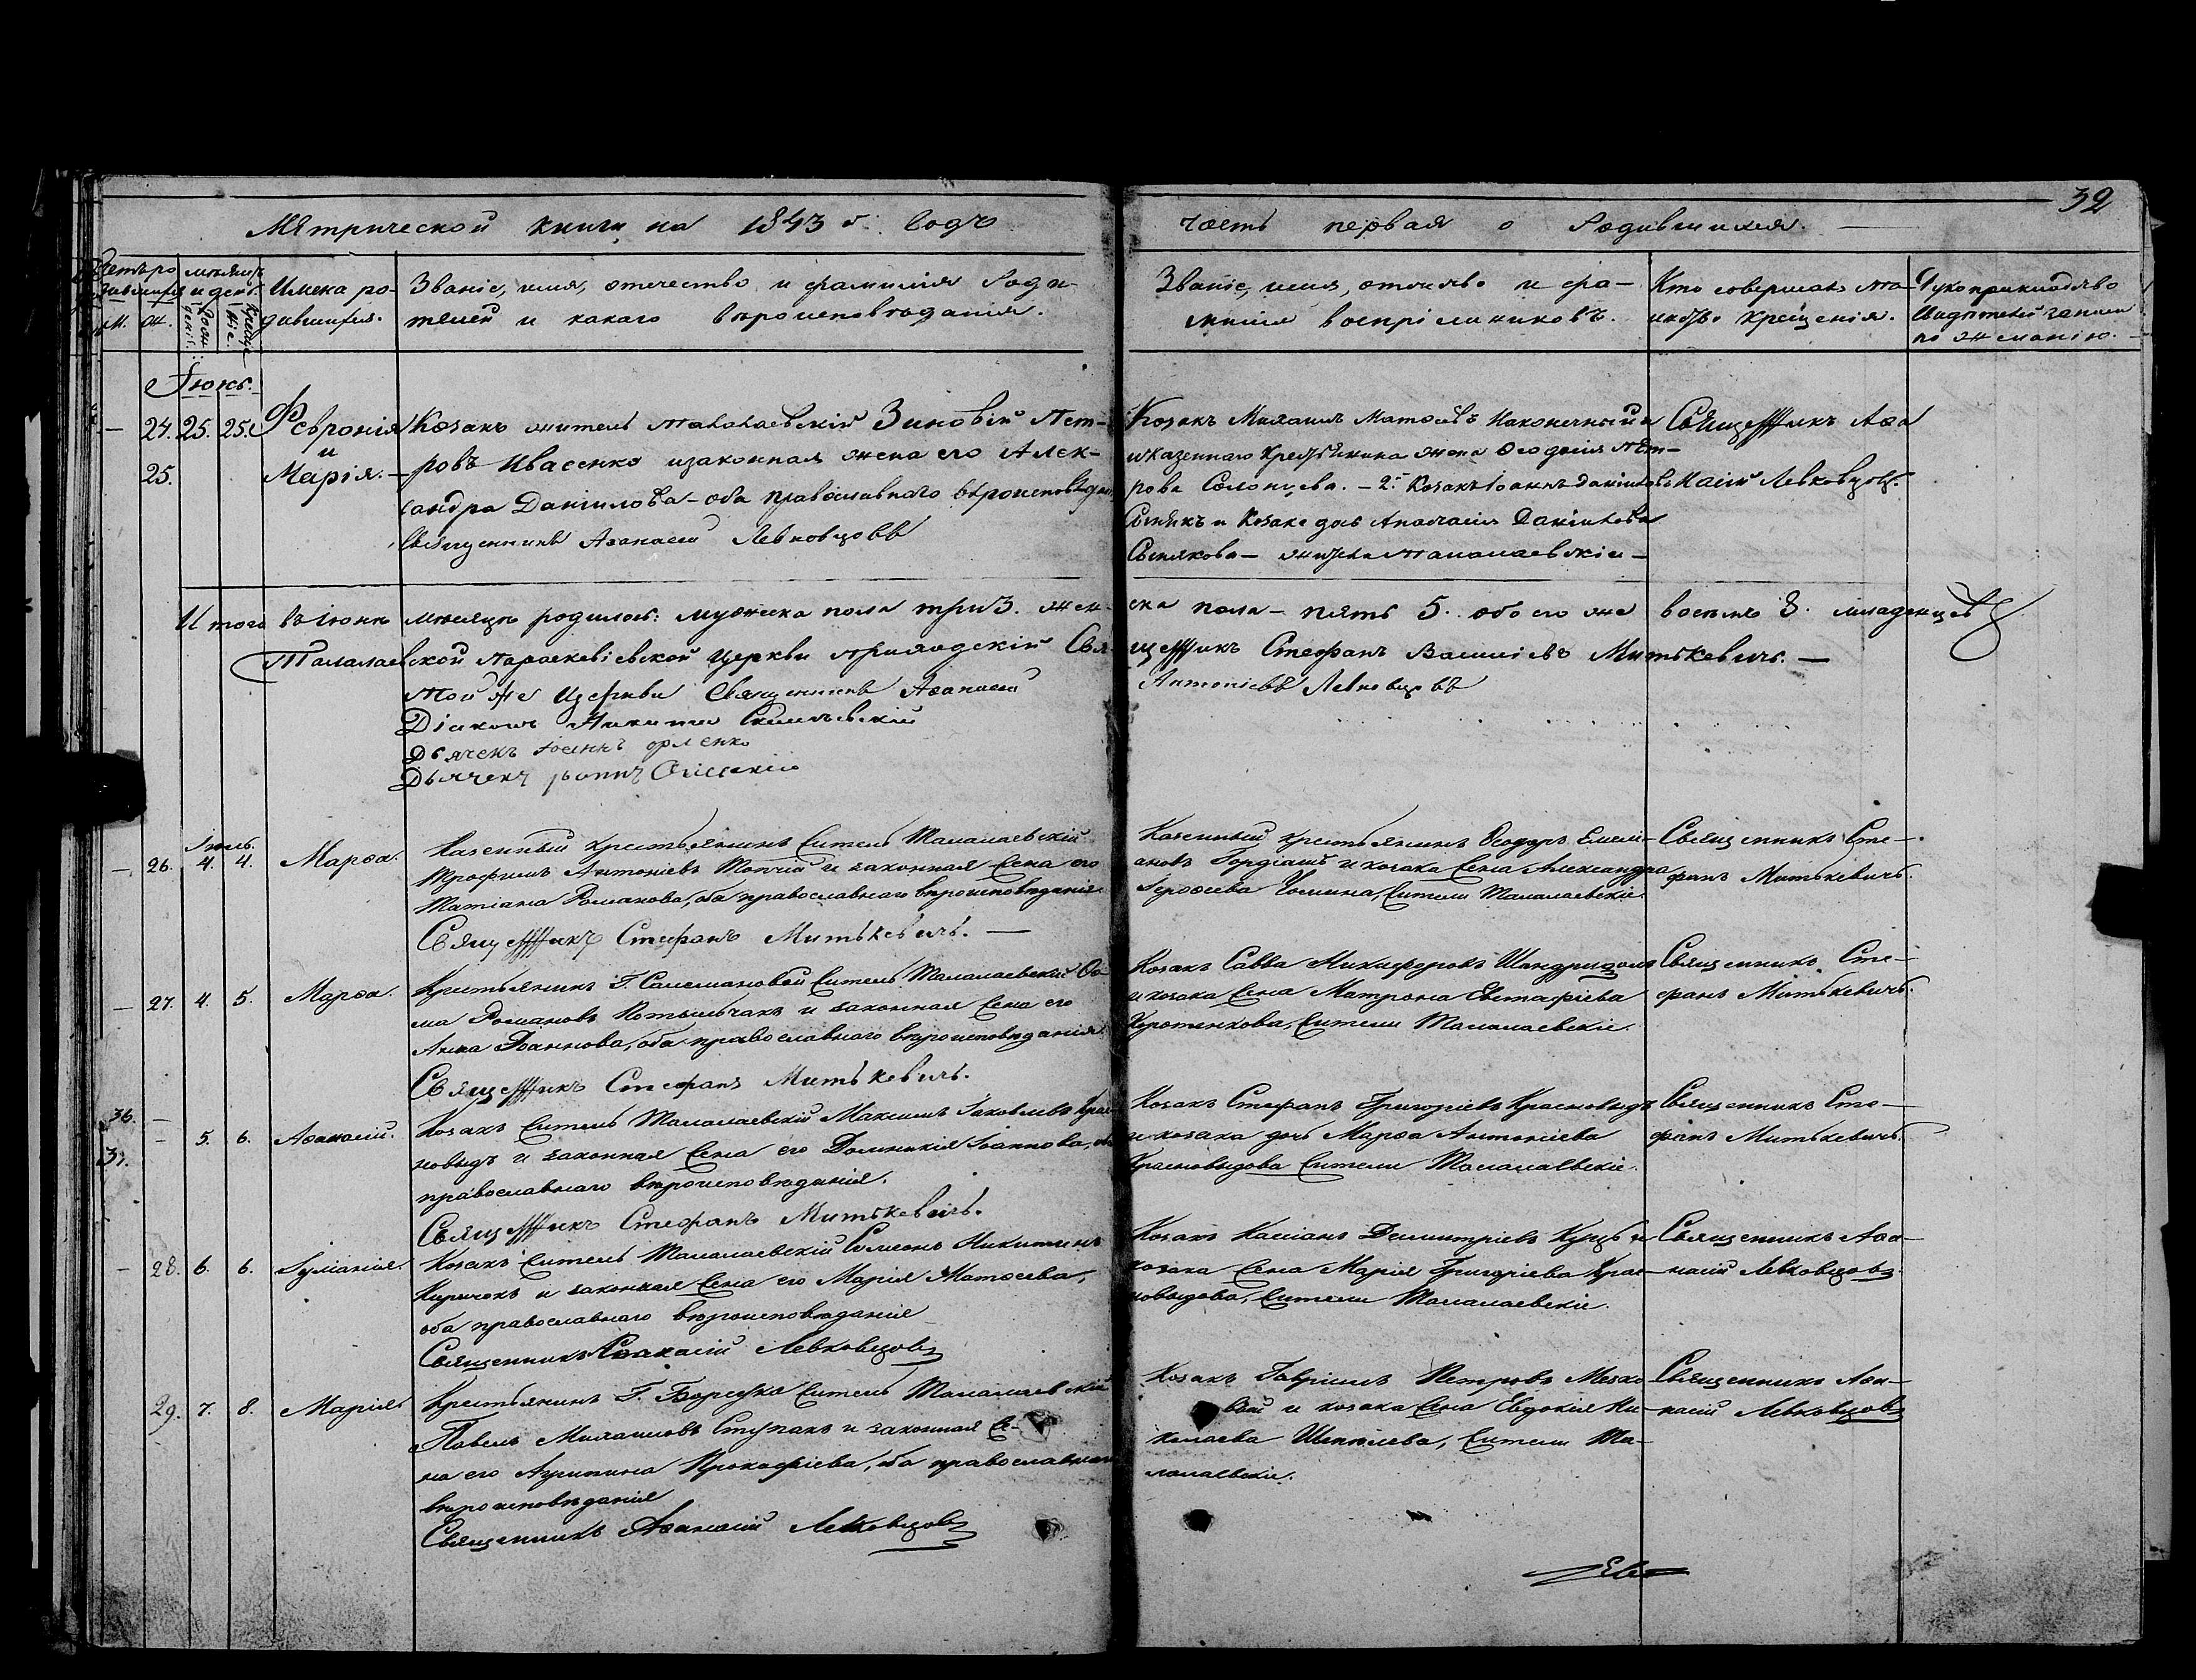 32
Метрической книги на 1843 й годъ
часть первая о родившихся.
Счетъ родившихся
м. ж.
мѣсяцъ и день.
рожденія. крещеніе.
Имена родившихся.
Званіе, имя, отчество и фамилія роди-
телей и какаго вѣроисповѣданія.
Званіе, имя, отчество и фа-
милія воспріемниковъ.
Кто совершалъ та-
инство крещенія.
Рукоприкладство
свидѣтелей записи
по желанію.
Іюнь.
24. 25. 25. Февронія
и
25. Марія.
Козакъ житель талалаевскій Зиновій Пет-
ровъ Ивасенко и законная жена его Алек-
сандра Даніилова - оба православнаго вѣроисповѣданія
Священникъ Аѳанасій Левковцовъ
Козакъ Михаилъ Матѳеевъ Наконечный
и казеннаго крестьянина жена Ѳеодосія Пет-
рова Солонцева. - 2. Козакъ Іоаннъ Даніиловъ
и козака дочь Анастасія Даніилова
- жители талалаевскіи -
Священникъ Аѳа
насій Левковцовъ.
Итого въ Іюнѣ мѣсяцѣ родилось: мужеска пола три 3. жен-
ска пола - пять 5. обоего же восемь 8. младенцевъ
Талалаевской Параскевіевской церкви приходскій Свя-
щенникъ Стефанъ Василіевъ Митькевичъ. -
той же церкви Священникъ Аѳанасій
Антоніевъ Левковцовъ
Діаконъ Никита
Дьячекъ Іоаннъ Орленко
Дьячекъ
Іюль.
26. 4. 4. Марѳа.
Казенный крестьянинъ житель Талалаевскій
Трофимъ Антоніевъ и законная жена его
Татіана Романова, оба православнаго вѣроисповѣданія
Священникъ Стефанъ Митькевичъ. -
Казенный крестьянинъ Ѳеодоръ Емели-
ановъ Гордіашъ и козака жена Александра
Іероѳеева жители Талалаевскіе
Священникъ Сте-
фанъ Митькевичъ.
27. 4. 5. Марѳа.
Крестьянинъ Г. Салимановой житель Талалаевскій Ѳо-
ма Романовъ и законная жена его
Анна Іоаннова, оба православнаго вѣроисповѣданія.
Священникъ Стефанъ Митькевичъ.
Козакъ Савва Никифоровъ
и козака жена Матрона Евстафіева
Коротенкова, жители Талалаевскіе.
Священникъ Сте-
фанъ Митькевичъ.
36.
31. 5. 6. Аѳанасій.
Козакъ житель Талалаевскій Максимъ Іаковлевъ Крас-
новыдъ и законная жена его Домникія Іоаннова, оба
православнаго вѣроисповѣданія.
Священникъ Стефанъ Митькевичъ.
Козакъ Стефанъ Григоріевъ Красновыдъ
и козака дочь Марѳа Антоніева
Красновыдова жители Талалаевскіе.
Священникъ Сте-
фанъ Митькевичъ.
28. 6. 6. Іуліанія
Козакъ житель Талалаевскій Симеонъ Никитинъ
Киричокъ и законная жена его Марія Матѳеева,
оба православнаго вѣроисповѣданія
Священникъ Аѳанасій Левковцовъ
Козакъ Касіанъ Димитріевъ Куцъ и
козака жена Марія Григоріева Крас-
новыдова, жители Талалаевскіе.
Священникъ Аѳа-
насій Левковцовъ
29. 7. 8. Марія
Крестьянинъ Г. житель Талалаевскій
Павелъ Михаиловъ Ступакъ и законная же-
на его Агрипина Прокофіева, оба православнаго
вѣроисповѣданія
Священникъ Аѳанасій Левковцовъ
Козакъ Гавріилъ Петровъ
и козака жена Евдокія Ни-
колаева Шепелева, жители Та-
лалаевскіе.
Священникъ Аѳа-
насій Левковцовъ